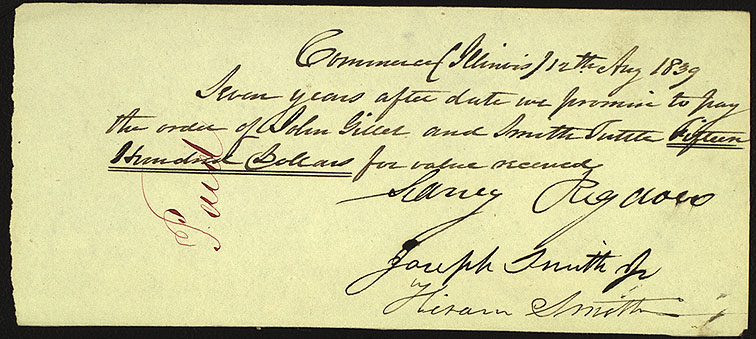 Commerce (Illinois) 12th Aug 1839
Seven years after date we promise to pay
the order of John Gillet and Smith Tuttle Fifteen
Hundred Dollars for value received
Paid
Sidney Rigdon
Joseph Smith Jr
Hiram Smith